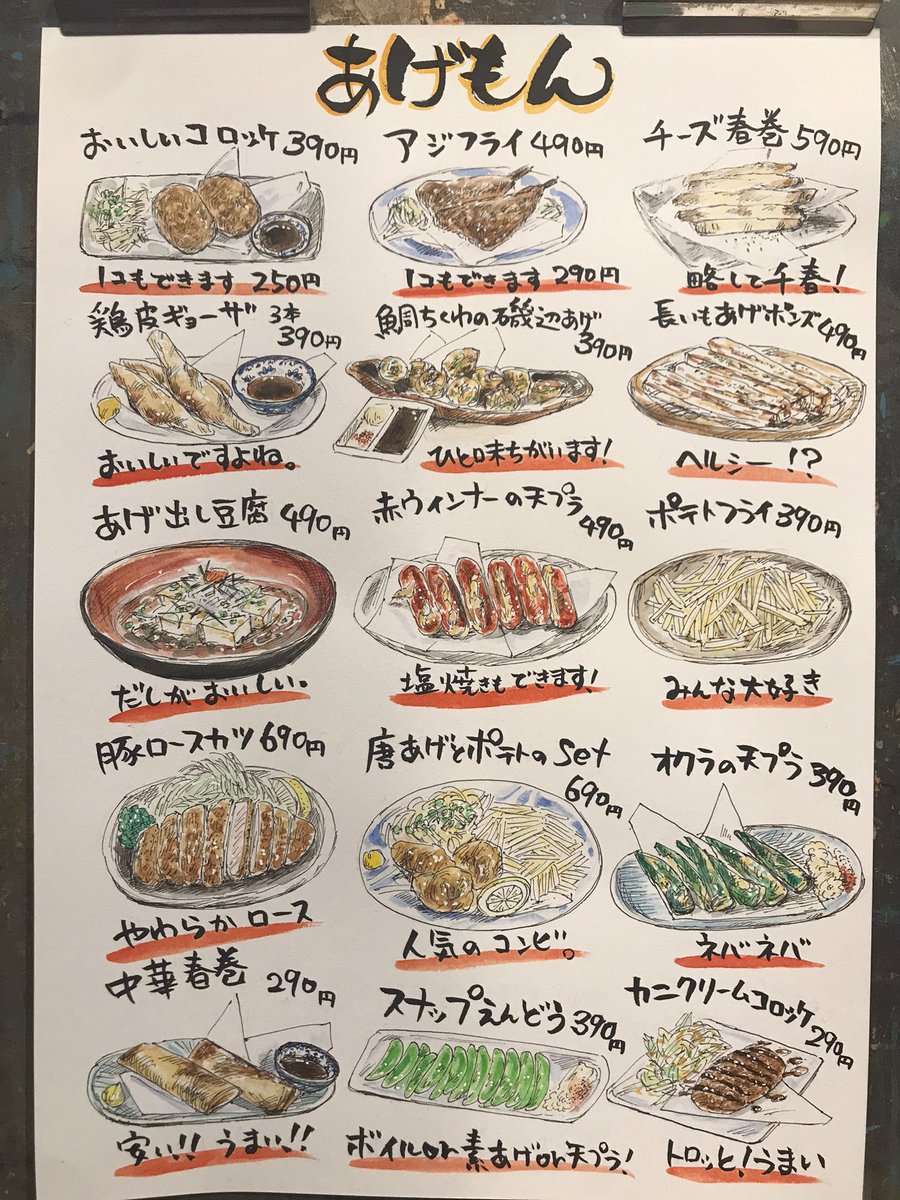 あげもん
おいしいコロッケ 390円
1コもできます 250円
アジフライ 490円
1コもできます 290円
チーズ春巻 590円
略して千春!
鶏皮ギョーザ 3本
390円
おいしいですよね。
鯛ちくわの磯辺あげ
390円
ひと味ちがいます!
長いもあげポンズ 490円
ヘルシー!?
あげ出し豆腐 490円
だしがおいしい。
赤ウィンナーの天プラ
490円
塩焼きもできます!
ポテトフライ 390円
みんな大好き
豚ロースカツ 690円
やわらかロース
唐あげとポテトのset
690円
人気のコンビ。
オクラの天プラ 390円
ネバネバ
中華春巻 290円
安い!! うまい!!
スナップえんどう 390円
ボイルor素あげor天プラ!
カニクリームコロッケ 290円
トロッと!うまい